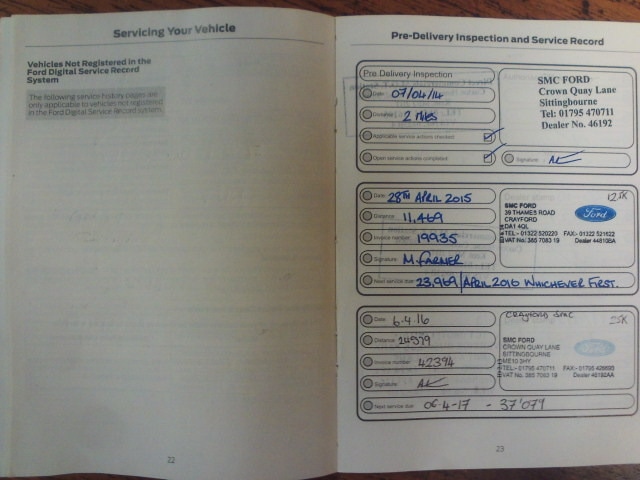 Servicing Your Vehicle
Vehicles Not Registered in the
Ford Digital Service Record
System
The following service history pages are
only applicable to vehicles not registered
in the Ford Digital Service Record system.
22
Pre-Delivery Inspection and Service Record
Pre Delivery Inspection
Date: 07/04/14
Distance: 2 Miles
Applicable service actions checked
Open service actions completed
SMC FORD
Crown Quay Lane
Sittingbourne
Tel: 01795 470711
Dealer No. 46192
Signature:
Date: 28TH APRIL 2015
Distance: 11,469
Invoice number: 19935
Signature: M. FARMER
Next service due: 23,969/APRIL 2016 WHICHEVER FIRST.
12.5K
SMC FORD
39 THAMES ROAD
CRAYFORD
DA1 4QL
TEL:- 01322 520220 FAX:- 01322 521622
VAT No: 385 7083 19 Dealer 44810BA
Ford
Date: 6.4.16
Distance: 24579
Invoice number: 42394
Signature:
Next service due: 06-4-17 - 37'079
25K
SMC FORD
CROWN QUAY LANE
SITTINGBOURNE
ME10 3HY
TEL:- 01795 470711
VAT No. 385 7083 19 Dealer 46192AA
Ford
23